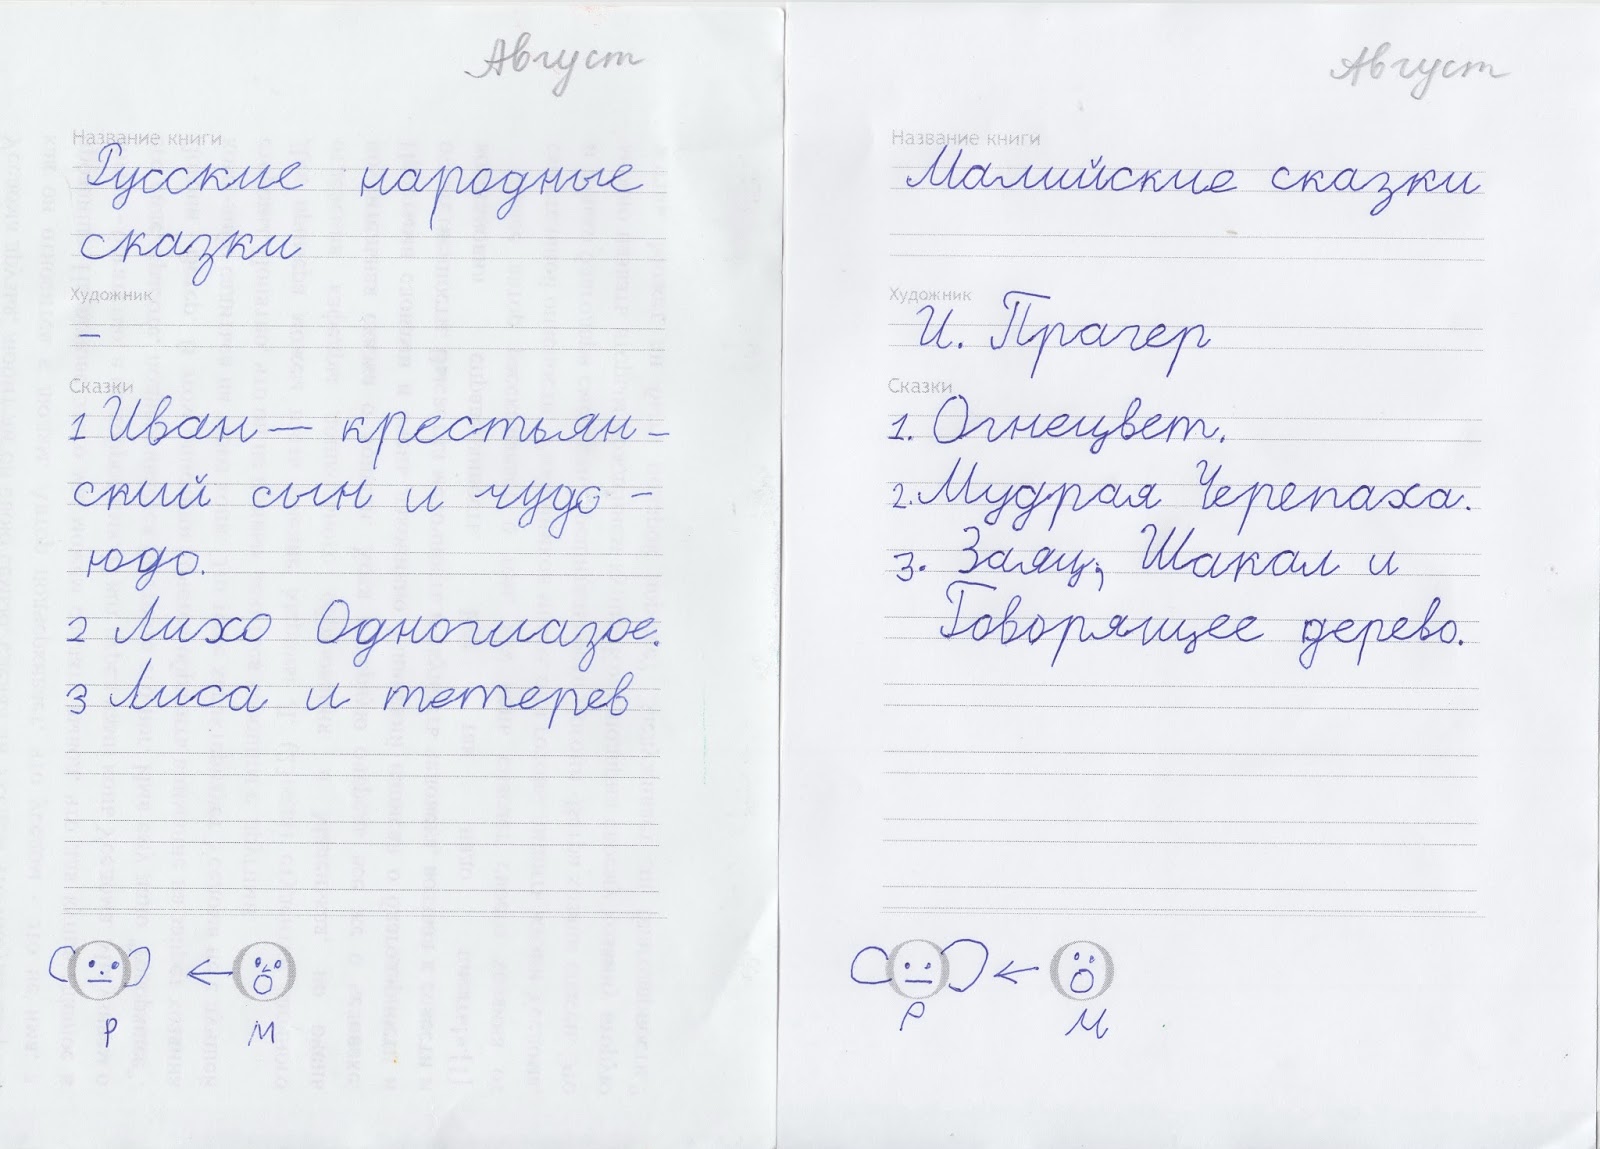 Август
Название книги
Русские народные
сказки
Художник
–
Сказки
1 Иван — крестьян-
ский сын и чудо -
юдо.
2 Лихо Одноглазое.
3 Лиса и тетерев
Р М
Август
Название книги
Малийские сказки
Художник
И. Прагер
Сказки
1. Огнецвет.
2. Мудрая Черепаха.
3. Заяц, Шакал и
Говорящее дерево.
Р М